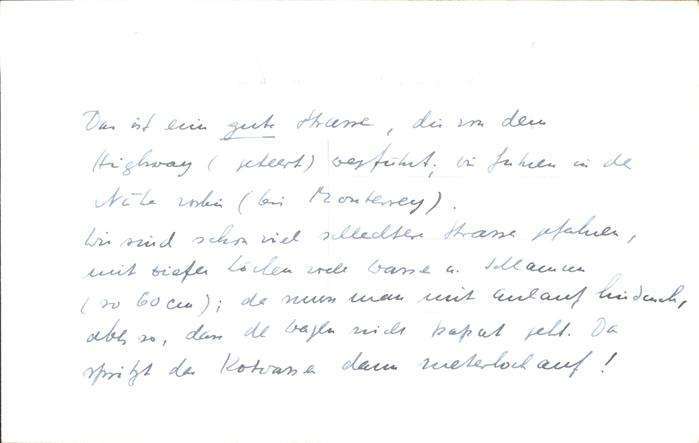 Das ist eine gute Strasse, die von dem
Highway (geteert) wegführt; wir fuhren in der
Nähe vorbei (bei Monterrey).
Wir sind schon viel schlechtere Strassen gefahren,
mit tiefen Löchern voll Wasser u. Schlamm
(so 60 cm); da muss man mit Anlauf hindurch,
aber so, dass der Wagen nicht kaput geht. Da
spritzt das Kotwasser dann meterhoch auf!